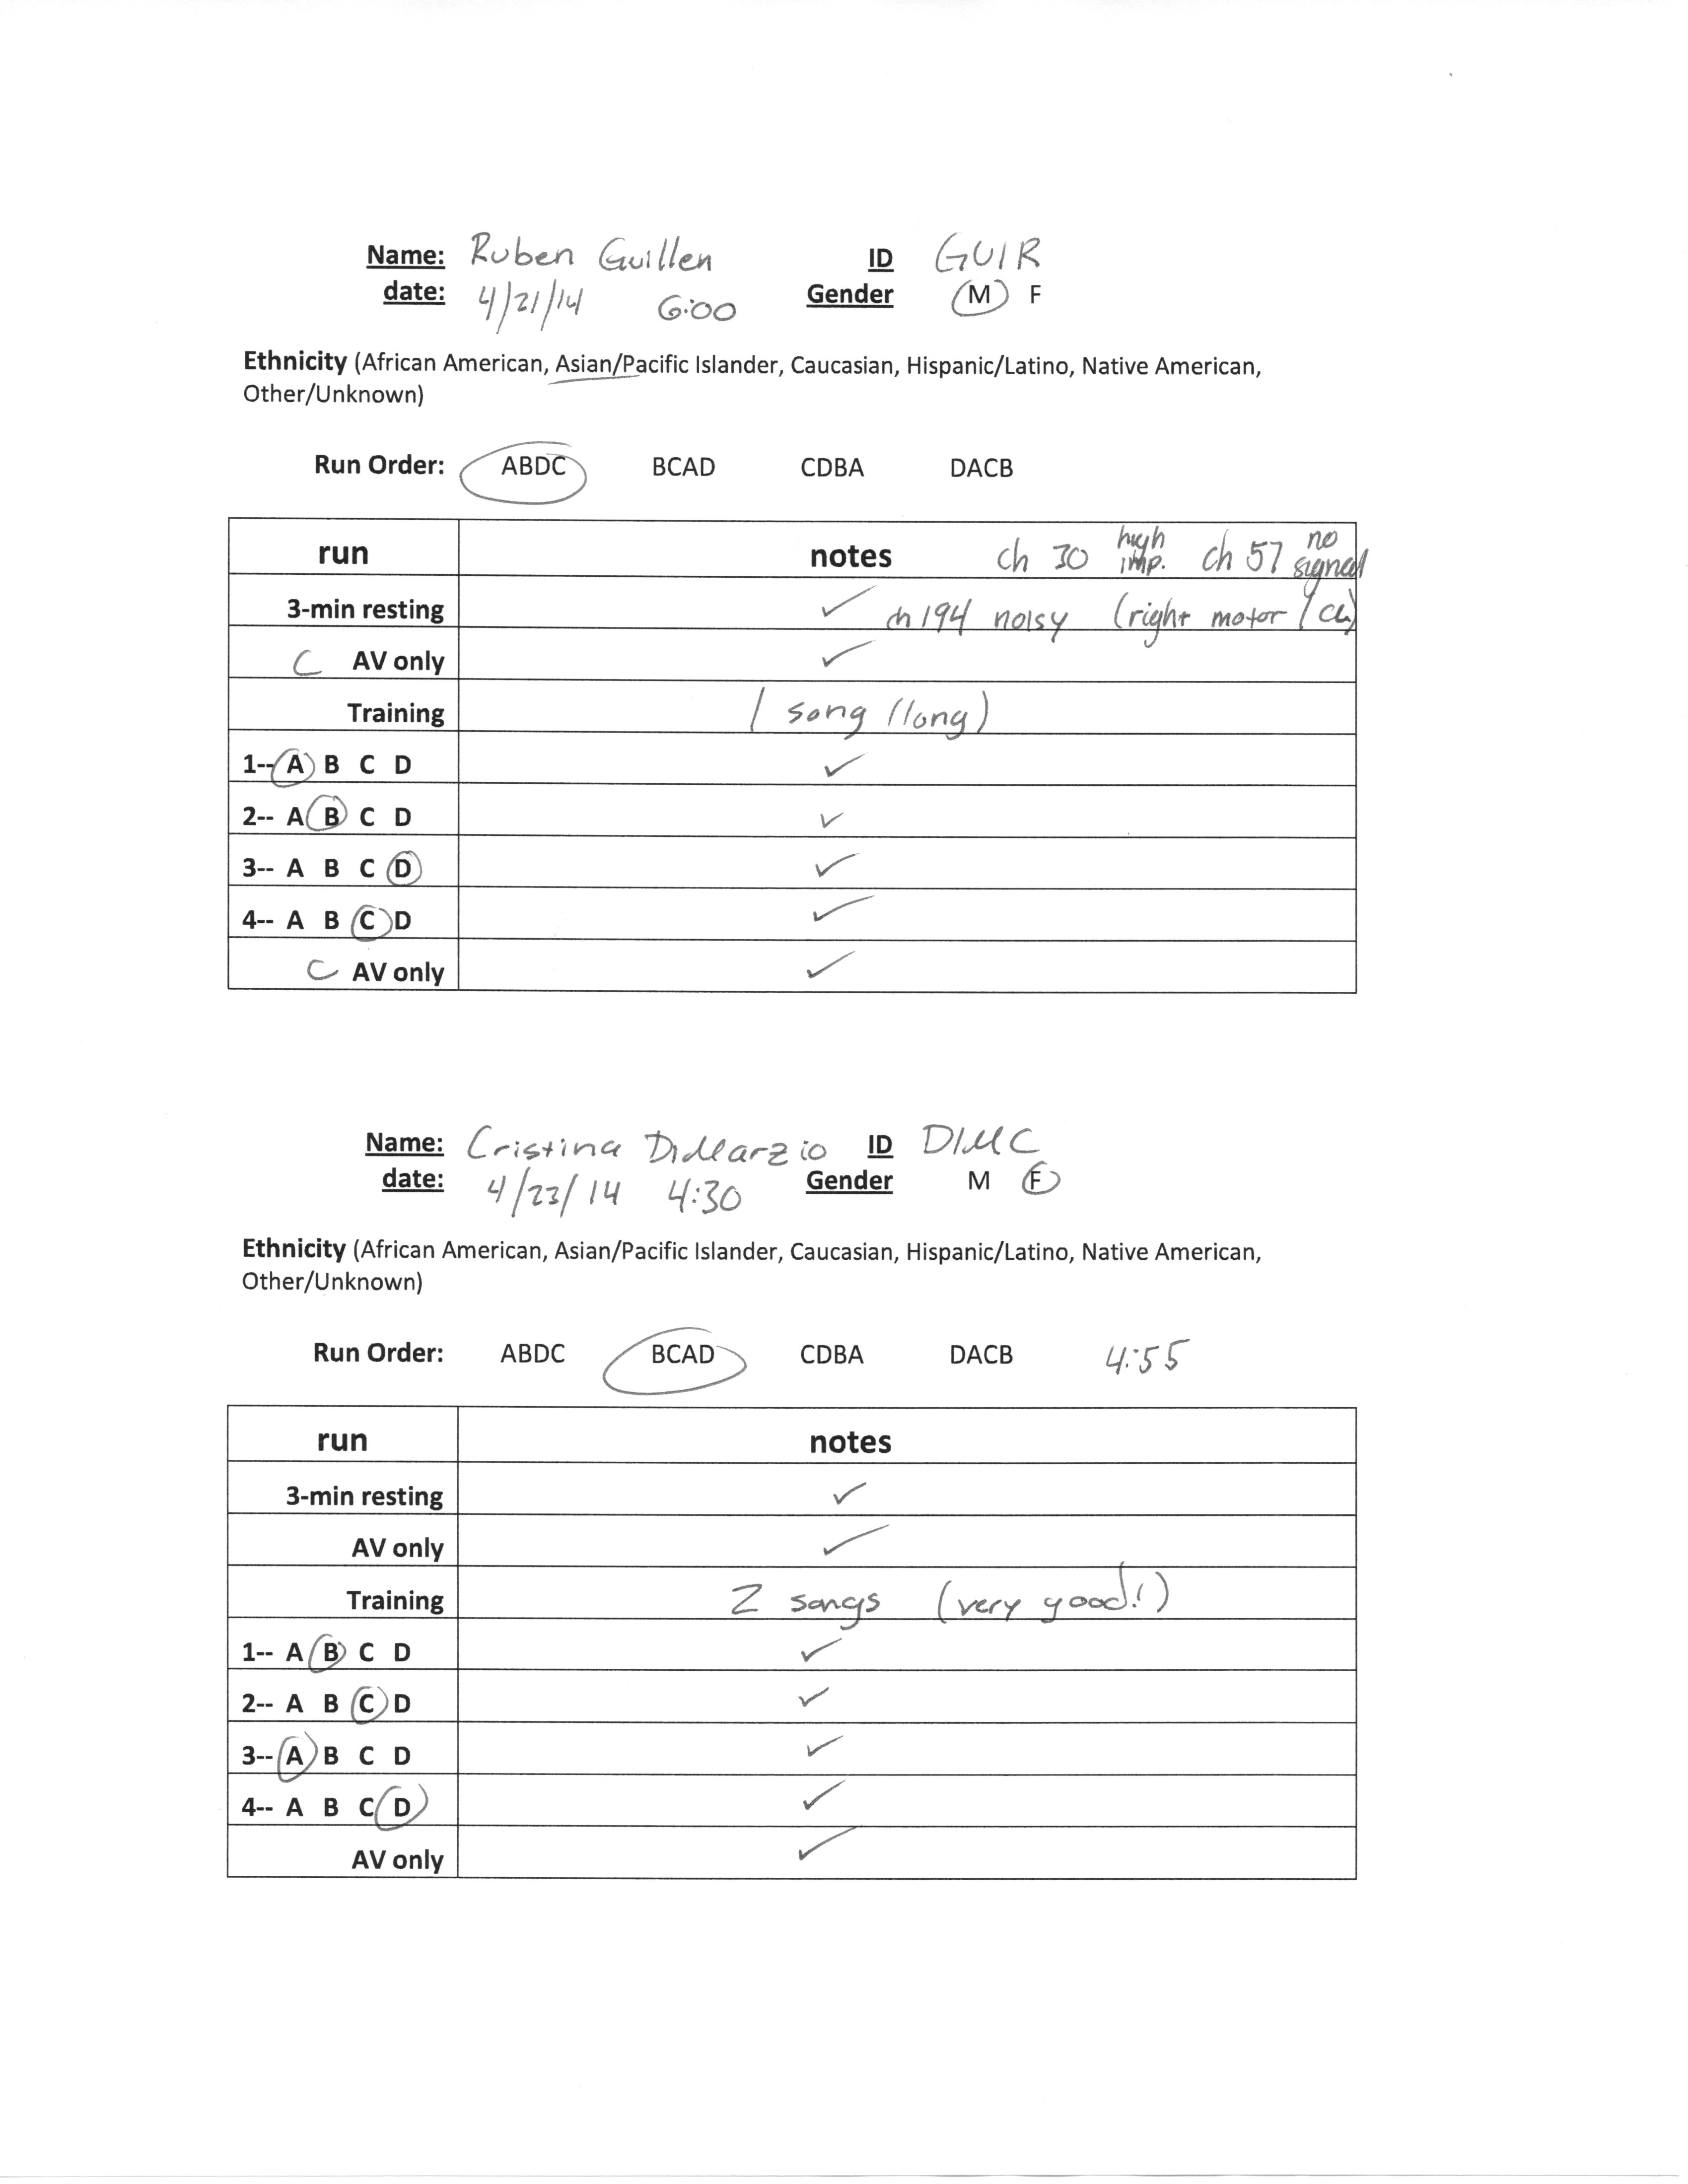 Name: Ruben Guillen ID GUIR
date: 4/21/14 6:00 Gender M F
Ethnicity (African American, Asian/Pacific Islander, Caucasian, Hispanic/Latino, Native American,
Other/Unknown)
Run Order: ABDC BCAD CDBA DACB
run notes ch 30 high imp. ch 57 no signal
3-min resting ✓ ch 194 noisy (right motor /
C AV only ✓
Training 1 song (long)
1-- A B C D ✓
2-- A B C D ✓
3-- A B C D ✓
4-- A B C D ✓
C AV only ✓
Name: Cristina DiMarzio ID DIMC
date: 4/23/14 4:30 Gender M F
Ethnicity (African American, Asian/Pacific Islander, Caucasian, Hispanic/Latino, Native American,
Other/Unknown)
Run Order: ABDC BCAD CDBA DACB 4:55
run notes
3-min resting ✓
AV only ✓
Training 2 songs (very good!)
1-- A B C D ✓
2-- A B C D ✓
3-- A B C D ✓
4-- A B C D ✓
AV only ✓